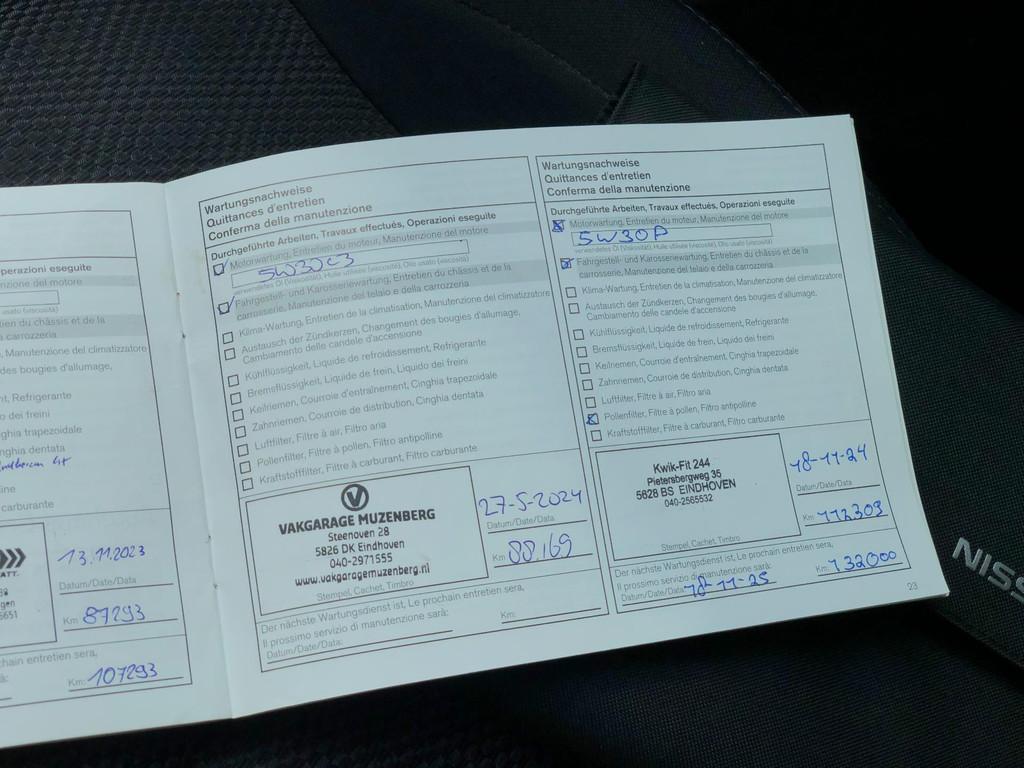 perazioni eseguite
nzione del motore
usato (viscosità)
tien du châssis et de la
a carrozzeria
, Manutenzione del climatizzatore
des bougies d'allumage,
nt, Refrigerante
do dei freini
inghia trapezoidale
nghia dentata
ine
carburante
ATT.
gen
5651
13.11.2023
Datum/Date/Data
Km 87293
chain entretien sera,
à:
Km: 107293
Wartungsnachweise
Quittances d'entretien
Conferma della manutenzione
Durchgeführte Arbeiten, Travaux effectués, Operazioni eseguite
Motorwartung, Entretien du moteur, Manutenzione del motore
5W30C3
verwendetes Öl (Viskosität), Huile utilisée (viscosité), Olio usato (viscosità)
Fahrgestell- und Karosseriewartung, Entretien du châssis et de la
carrosserie, Manutenzione del telaio e della carrozzeria
Klima-Wartung, Entretien de la climatisation, Manutenzione del climatizzatore
Austausch der Zündkerzen, Changement des bougies d'allumage,
Cambiamento delle candele d'accensione
Kühlflüssigkeit, Liquide de refroidissement, Refrigerante
Bremsflüssigkeit, Liquide de frein, Liquido dei freini
Keilriemen, Courroie d'entraînement, Cinghia trapezoidale
Zahnriemen, Courroie de distribution, Cinghia dentata
Luftfilter, Filtre à air, Filtro aria
Pollenfilter, Filtre à pollen, Filtro antipolline
Kraftstofffilter, Filtre à carburant, Filtro carburante
VAKGARAGE MUZENBERG
Steenoven 28
5826 DK Eindhoven
040-2971555
www.vakgaragemuzenberg.nl
Stempel, Cachet, Timbro
27-5-2024
Datum/Date/Data
Km 88169
Der nächste Wartungsdienst ist, Le prochain entretien sera,
Il prossimo servizio di manutenzione sarà:
Datum/Date/Data:
Km:
Wartungsnachweise
Quittances d'entretien
Conferma della manutenzione
Durchgeführte Arbeiten, Travaux effectués, Operazioni eseguite
Motorwartung, Entretien du moteur, Manutenzione del motore
5W30P
verwendetes Öl (Viskosität), Huile utilisée (viscosité), Olio usato (viscosità)
Fahrgestell- und Karosseriewartung, Entretien du châssis et de la
carrosserie, Manutenzione del telaio e della carrozzeria
Klima-Wartung, Entretien de la climatisation, Manutenzione del climatizzatore
Austausch der Zündkerzen, Changement des bougies d'allumage,
Cambiamento delle candele d'accensione
Kühlflüssigkeit, Liquide de refroidissement, Refrigerante
Bremsflüssigkeit, Liquide de frein, Liquido dei freini
Keilriemen, Courroie d'entraînement, Cinghia trapezoidale
Zahnriemen, Courroie de distribution, Cinghia dentata
Luftfilter, Filtre à air, Filtro aria
Pollenfilter, Filtre à pollen, Filtro antipolline
Kraftstofffilter, Filtre à carburant, Filtro carburante
Kwik-Fit 244
Pietersbergweg 35
5628 BS EINDHOVEN
040-2565532
Stempel, Cachet, Timbro
18-11-24
Datum/Date/Data
Km 112303
Der nächste Wartungsdienst ist, Le prochain entretien sera,
Il prossimo servizio di manutenzione sarà:
Datum/Date/Data: 18-11-25
Km: 132000
23
NISS